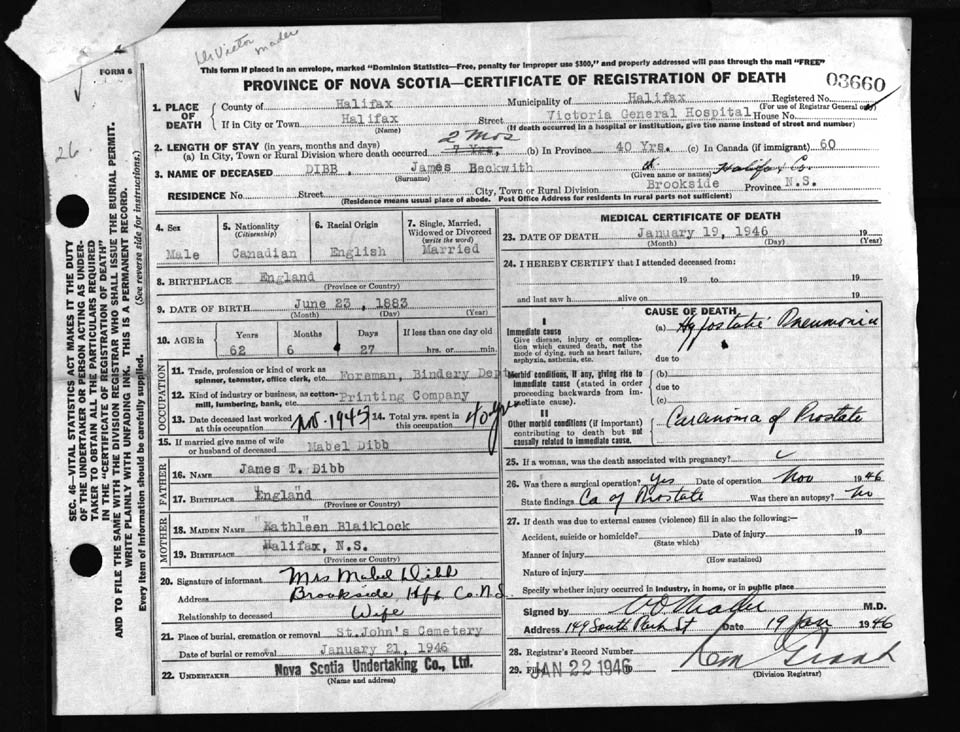 Dr Victor
Mader
FORM 6
26.
This form if placed in an envelope, marked "Dominion Statistics—Free, penalty for improper use $300," and properly addressed will pass through the mail "FREE"
PROVINCE OF NOVA SCOTIA—CERTIFICATE OF REGISTRATION OF DEATH
03660
SEC. 46—VITAL STATISTICS ACT MAKES IT THE DUTY
OF THE UNDERTAKER OR PERSON ACTING AS UNDER-
TAKER TO OBTAIN ALL THE PARTICULARS REQUIRED
IN THE "CERTIFICATE OF REGISTRATION OF DEATH"
AND TO FILE THE SAME WITH THE DIVISION REGISTRAR WHO SHALL ISSUE THE BURIAL PERMIT.
WRITE PLAINLY WITH UNFADING INK. THIS IS A PERMANENT RECORD.
Every item of information should be carefully supplied. (See reverse side for instructions.)
1. PLACE OF DEATH
County of Halifax Municipality of Halifax Registered No.
(For use of Registrar General only)
If in City or Town Halifax Street Victoria General Hospital House No.
(Name) (If death occurred in a hospital or institution, give the name instead of street and number)
2 Mos
2. LENGTH OF STAY (in years, months and days)
(a) In City, Town or Rural Division where death occurred 7 Yrs. (b) In Province 40 Yrs. (c) In Canada (if immigrant) 60
3. NAME OF DECEASED DIBB, James Beckwith
(Surname) (Given name or names)
Halifax Co.
RESIDENCE No. Street City, Town or Rural Division Brookside Province N.S.
(Residence means usual place of abode. Post Office Address for residents in rural parts not sufficient)
4. Sex
Male
5. Nationality
(Citizenship)
Canadian
6. Racial Origin
English
7. Single, Married, Widowed or Divorced
(write the word)
Married
8. BIRTHPLACE England
(Province or Country)
9. DATE OF BIRTH June 23, 1883
(Month) (Day) (Year)
10. AGE in Years Months Days If less than one day old
62 6 27 hrs. or min.
OCCUPATION
11. Trade, profession or kind of work as
spinner, teamster, office clerk, etc. Foreman, Bindery Dept
12. Kind of industry or business, as cotton-
mill, lumbering, bank, etc. Printing Company
13. Date deceased last worked
at this occupation Nov. 1945 14. Total yrs. spent in
this occupation 40 yrs
15. If married give name of wife
or husband of deceased Mabel Dibb
FATHER
16. Name James T. Dibb
17. Birthplace "England"
(Province or Country)
MOTHER
18. Maiden Name Kathleen Blaiklock
19. Birthplace Halifax, N.S.
(Province or Country)
20. Signature of informant Mrs Mabel Dibb
Address Brookside Hfx Co. N.S.
Relationship to deceased Wife
21. Place of burial, cremation or removal St. John's Cemetery
Date of burial or removal January 21, 1946
22. UNDERTAKER Nova Scotia Undertaking Co., Ltd.
(Name and address)
MEDICAL CERTIFICATE OF DEATH
23. DATE OF DEATH January 19, 1946 19
(Month) (Day) (Year)
24. I HEREBY CERTIFY that I attended deceased from:
19 to 19
and last saw h alive on 19
CAUSE OF DEATH
I
Immediate cause
Give disease, injury or complica-
tion which caused death, not the
mode of dying, such as heart failure,
asphyxia, asthenia, etc.
(a) Hypostatic Pneumonia
due to
Morbid conditions, if any, giving rise to
immediate cause (stated in order
proceeding backwards from im-
mediate cause).
(b)
due to
(c)
II
Other morbid conditions (if important)
contributing to death but not
causally related to immediate cause.
Carcinoma of Prostate
25. If a woman, was the death associated with pregnancy?
26. Was there a surgical operation? Yes Date of operation Nov 1946
State findings Ca of Prostate Was there an autopsy? No
27. If death was due to external causes (violence) fill in also the following:—
Accident, suicide or homicide? Date of injury 19
(State which)
Manner of injury
(How sustained)
Nature of injury
Specify whether injury occurred in industry, in home, or in public place
Signed by V.O. Mader M.D.
Address 149 South Park St Date 19 Jan 1946
28. Registrar's Record Number
29. Filed JAN 22 1946
Grant
(Division Registrar)